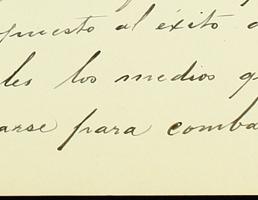 puesto al éxito d
les los medios q
arse para comba